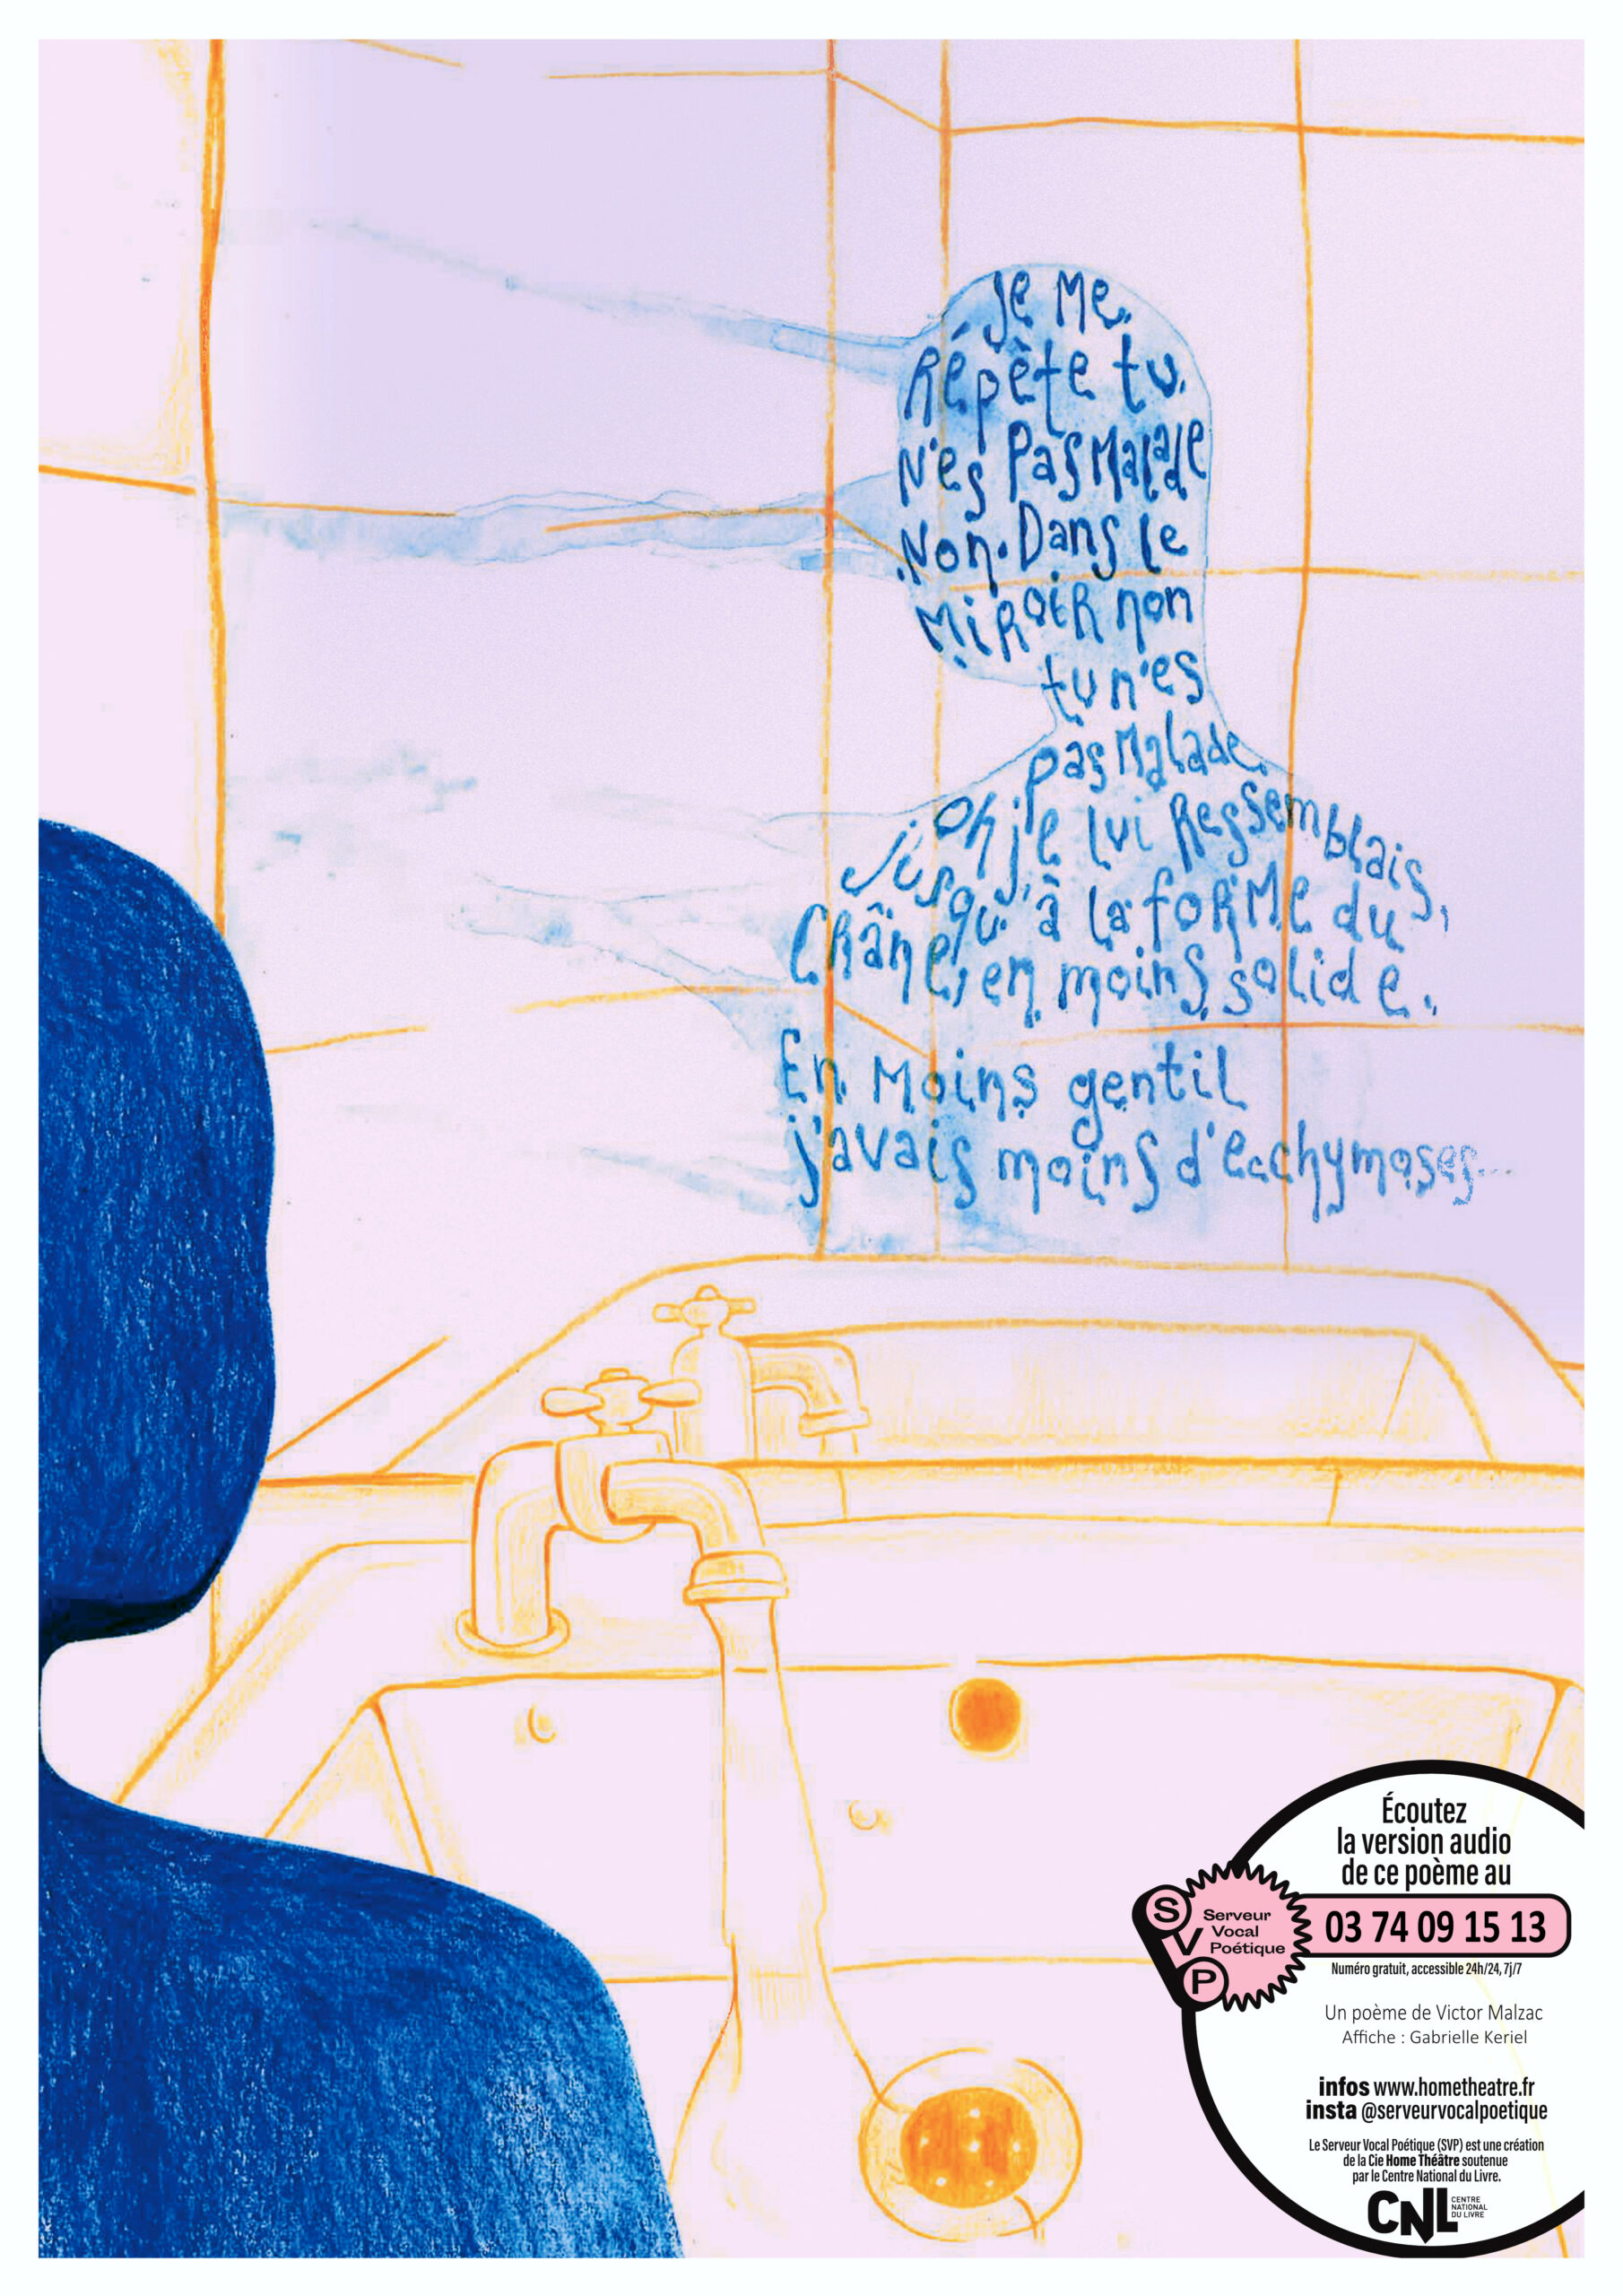 Je Me
Répète tu
N'es Pas Malade
Non. Dans le
Miroir non
tu n'es
pas Malade.
Oh je lui Ressemblais,
jusqu'à la forme du
Crâne, en moins solide.
En Moins gentil
j'avais moins d'ecchymoses...
Écoutez
la version audio
de ce poème au
S V P
Serveur
Vocal
Poétique
03 74 09 15 13
Numéro gratuit, accessible 24h/24, 7j/7
Un poème de Victor Malzac
Affiche : Gabrielle Keriel
infos www.hometheatre.fr
insta @serveurvocalpoetique
Le Serveur Vocal Poétique (SVP) est une création
de la Cie Home Théâtre soutenue
par le Centre National du Livre.
CNL CENTRE
NATIONAL
DU LIVRE